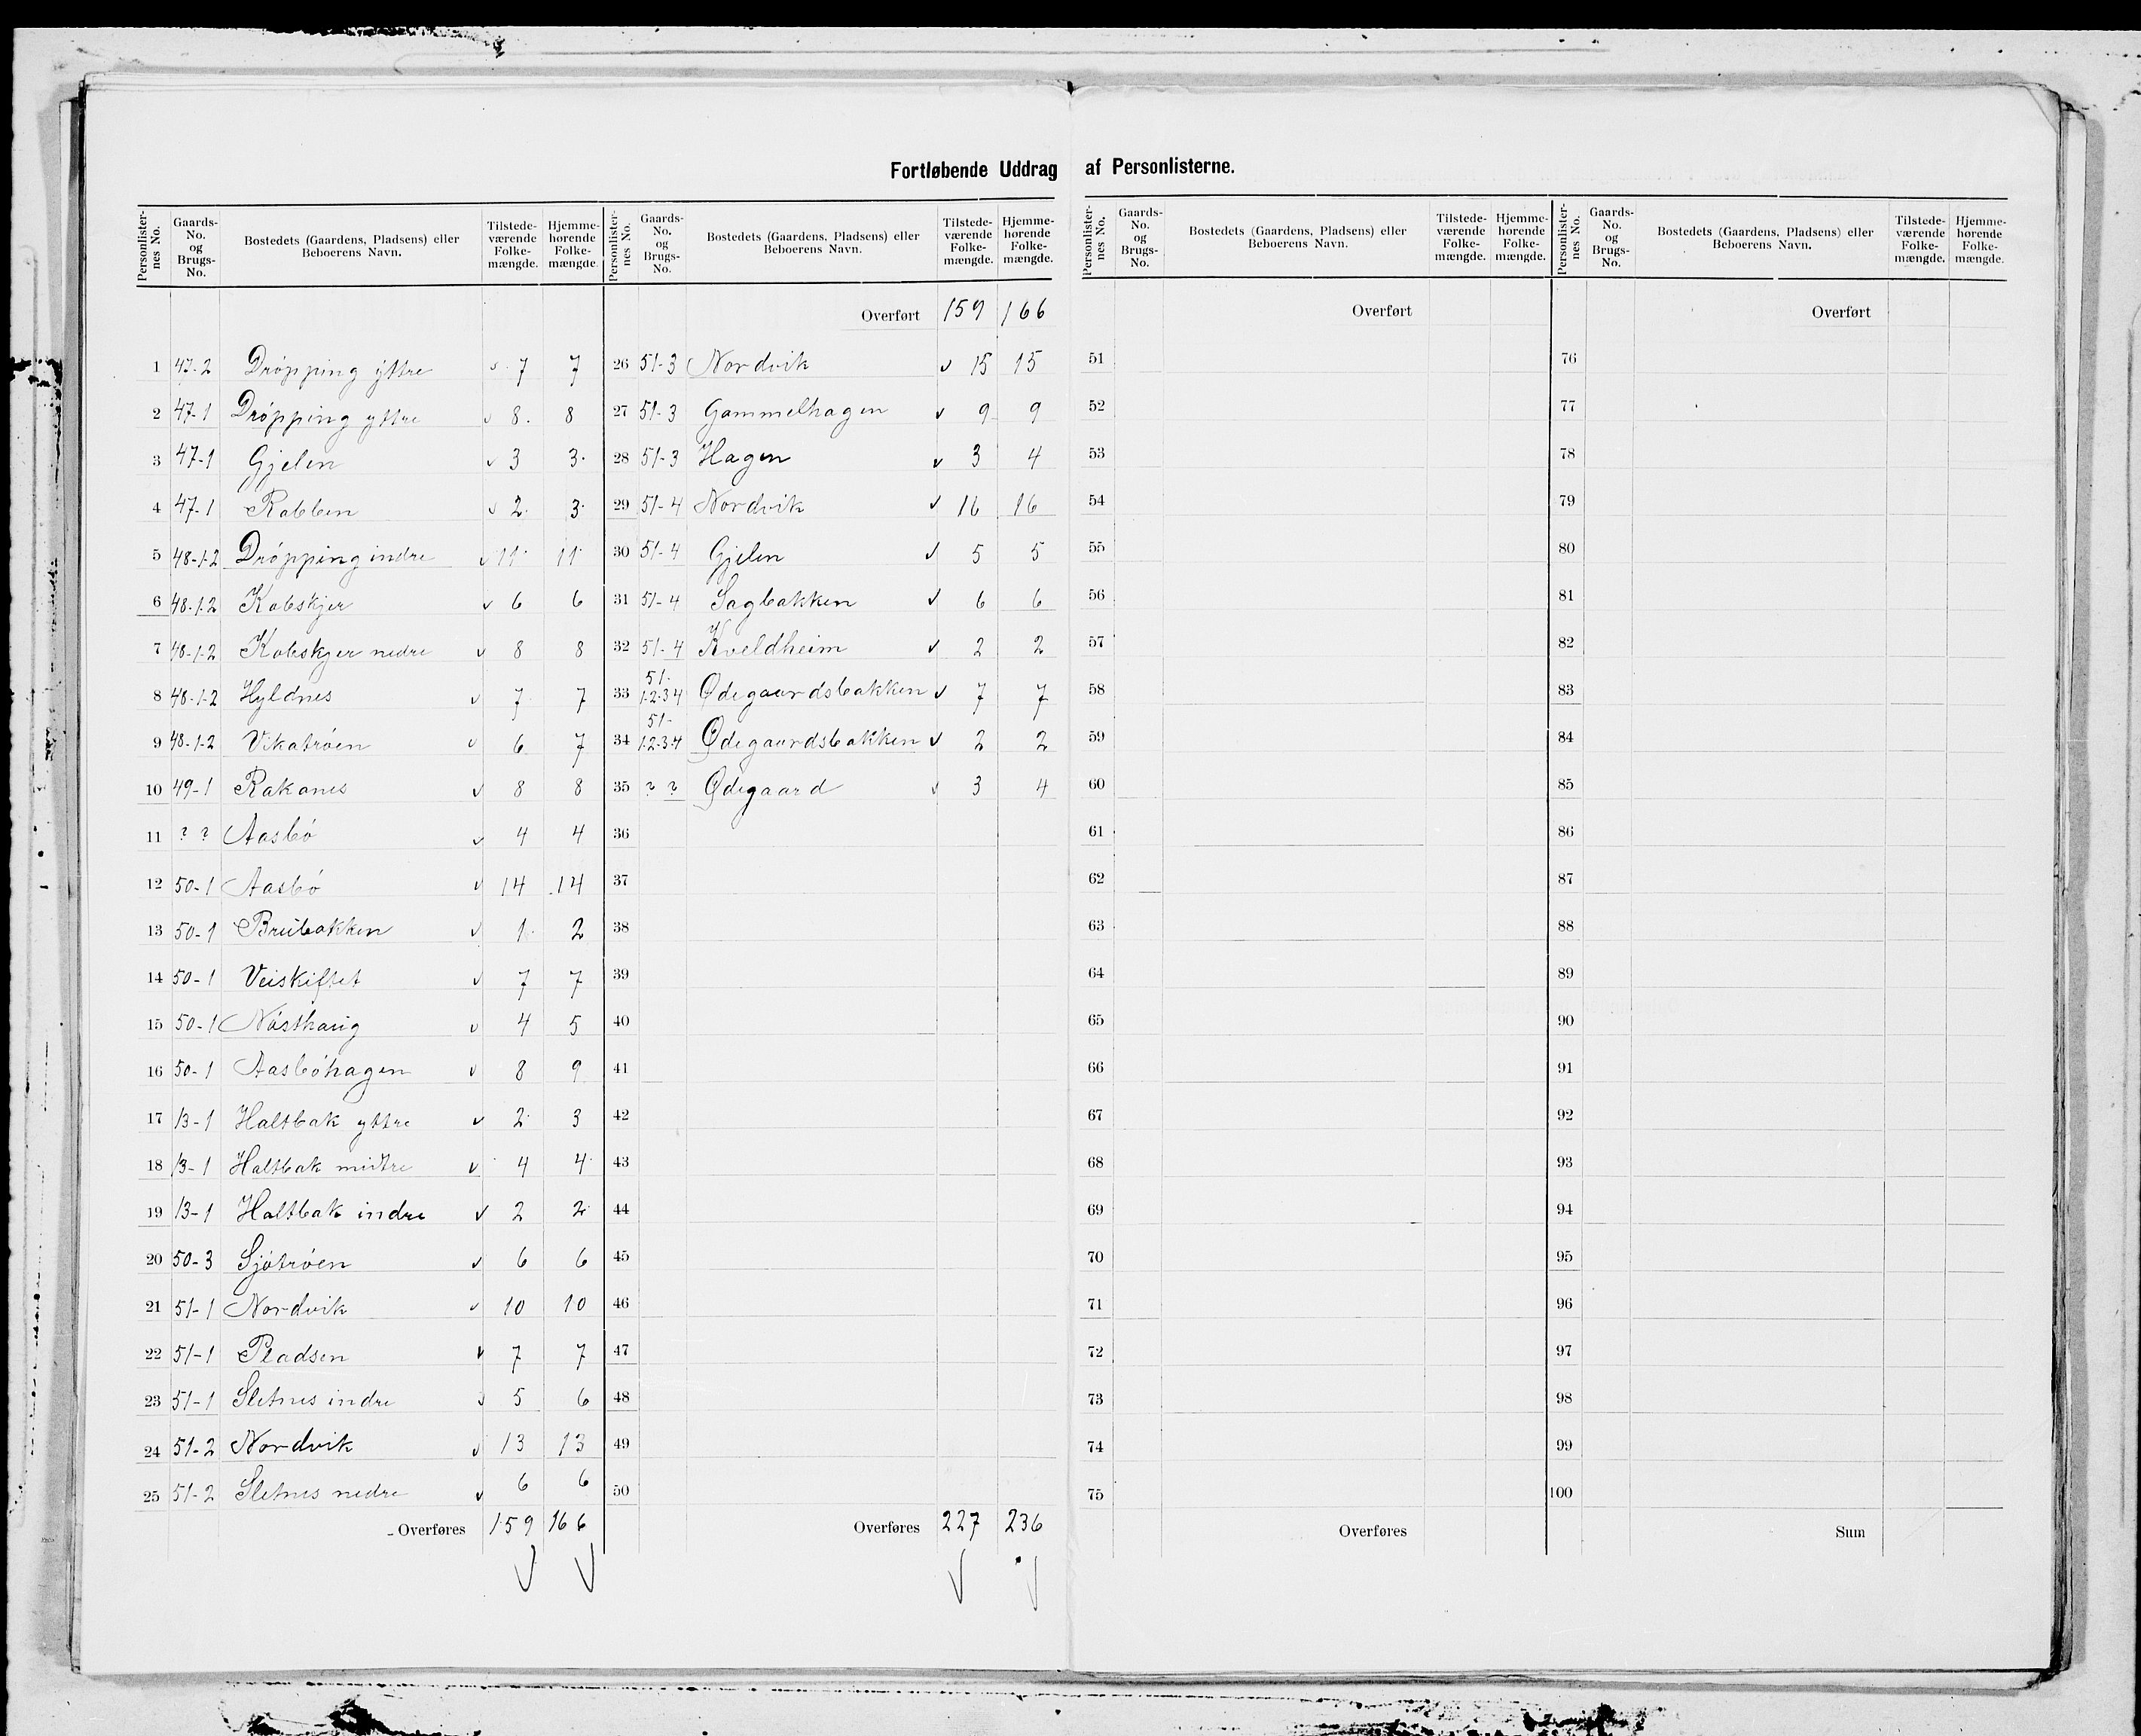 Fortløbende Uddrag af Personlisterne.
Personlister-nes No. | Gaards-No. og Brugs-No. | Bostedets (Gaardens, Pladsens) eller Beboerens Navn. | Tilstede-værende Folke-mængde. | Hjemme-hørende Folke-mængde.
1 47-2 Drøpping yttre 7 7
2 47-1 Drøpping yttre 8 8
3 47-1 Gjelen 3 3
4 47-1 Rabben 2 3
5 48-1-2 Drøpping indre 11 11
6 48-1-2 Kobskjer 6 6
7 48-1-2 Kobskjer nedre 8 8
8 48-1-2 Hyldnes 7 7
9 48-1-2 Vikatrøen 6 7
10 49-1 Rakanes 8 8
11 ? ? Aasbø 4 4
12 50-1 Aasbø 14 14
13 50-1 Brubakken 1 2
14 50-1 Veiskiftet 7 7
15 50-1 Nøsthaug 4 5
16 50-1 Aasbøhagen 8 9
17 13-1 Haltbak yttre 2 3
18 13-1 Haltbak midtre 4 4
19 13-1 Haltbak indre 2 2
20 50-3 Sjøtrøen 6 6
21 51-1 Nordvik 10 10
22 51-1 Pladsen 7 7
23 51-1 Sletnes indre 5 6
24 51-2 Nordvik 13 13
25 51-2 Sletnes nedre 6 6
Overføres 159 166
Personlister-nes No. | Gaards-No. og Brugs-No. | Bostedets (Gaardens, Pladsens) eller Beboerens Navn. | Tilstede-værende Folke-mængde. | Hjemme-hørende Folke-mængde.
Overført 159 166
26 51-3 Nordvik 15 15
27 51-3 Gammelhagen 9 9
28 51-3 Hagen 3 4
29 51-4 Nordvik 16 16
30 51-4 Gjelen 5 5
31 51-4 Sagbakken 6 6
32 51-4 Kveldheim 2 2
33 51-1-2-3-4 Ødegaardsbakken 7 7
34 51-1-2-3-4 Ødegaardsbakken 2 2
35 ? ? Ødegaard 3 4
36
37
38
39
40
41
42
43
44
45
46
47
48
49
50
Overføres 227 236
Personlister-nes No. | Gaards-No. og Brugs-No. | Bostedets (Gaardens, Pladsens) eller Beboerens Navn. | Tilstede-værende Folke-mængde. | Hjemme-hørende Folke-mængde.
Overført
51
52
53
54
55
56
57
58
59
60
61
62
63
64
65
66
67
68
69
70
71
72
73
74
75
Overføres
Personlister-nes No. | Gaards-No. og Brugs-No. | Bostedets (Gaardens, Pladsens) eller Beboerens Navn. | Tilstede-værende Folke-mængde. | Hjemme-hørende Folke-mængde.
Overført
76
77
78
79
80
81
82
83
84
85
86
87
88
89
90
91
92
93
94
95
96
97
98
99
100
Sum